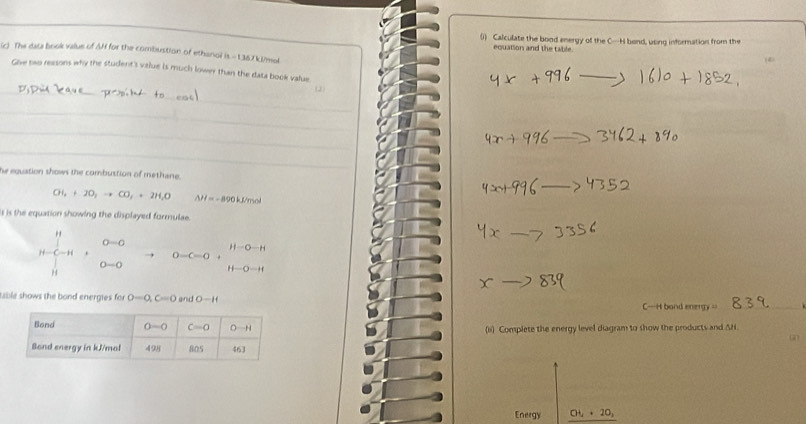 (c) The data book value of ΔH for the combustion of ethanol is –1367 kJ/mol.
Give two reasons why the student's value is much lower than the data book value.
(2)
to cool
The equation shows the combustion of methane.
CH₄ + 2O₂ → CO₂ + 2H₂O ΔH = –890 kJ/mol
is the equation showing the displayed formulae.
H
H—C—H + O=O → O=C=O + H—O—H
H O=O H—O—H
table shows the bond energies for O=O, C=O and O—H
Bond O=O C=O O—H
Bond energy in kJ/mol 498 805 463
(i) Calculate the bond energy of the C—H bond, using information from the
equation and the table.
(4)
4x + 996 → 1610 + 1852.
4x + 996 → 3462 + 890
4x+996 → 4352
4x → 3356
x → 839
C—H bond energy = 839
(ii) Complete the energy level diagram to show the products and ΔH.
Energy CH₄ + 2O₂